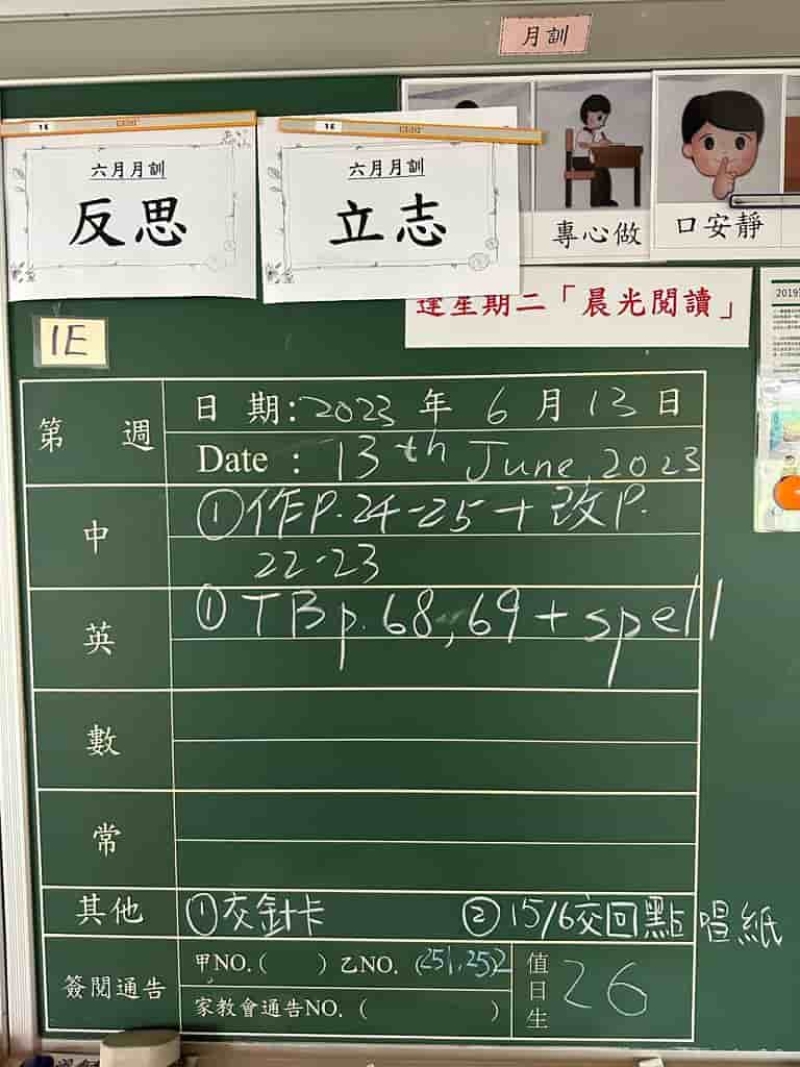 月訓
1E
六月月訓
反思
1E
六月月訓
立志
專心做
口安靜
逢星期二「晨光閱讀」
2019
1E
第 週
日 期:2023 年 6 月 13 日
Date : 13th June, 2023
中
①作P.24-25+改P.
22-23
英
①TBp.68,69+spell
數
常
其他
①交針卡
②15/6交回點唱紙
簽閱通告
甲NO.( ) 乙NO. (251,252
家教會通告NO. ( )
值日生
26